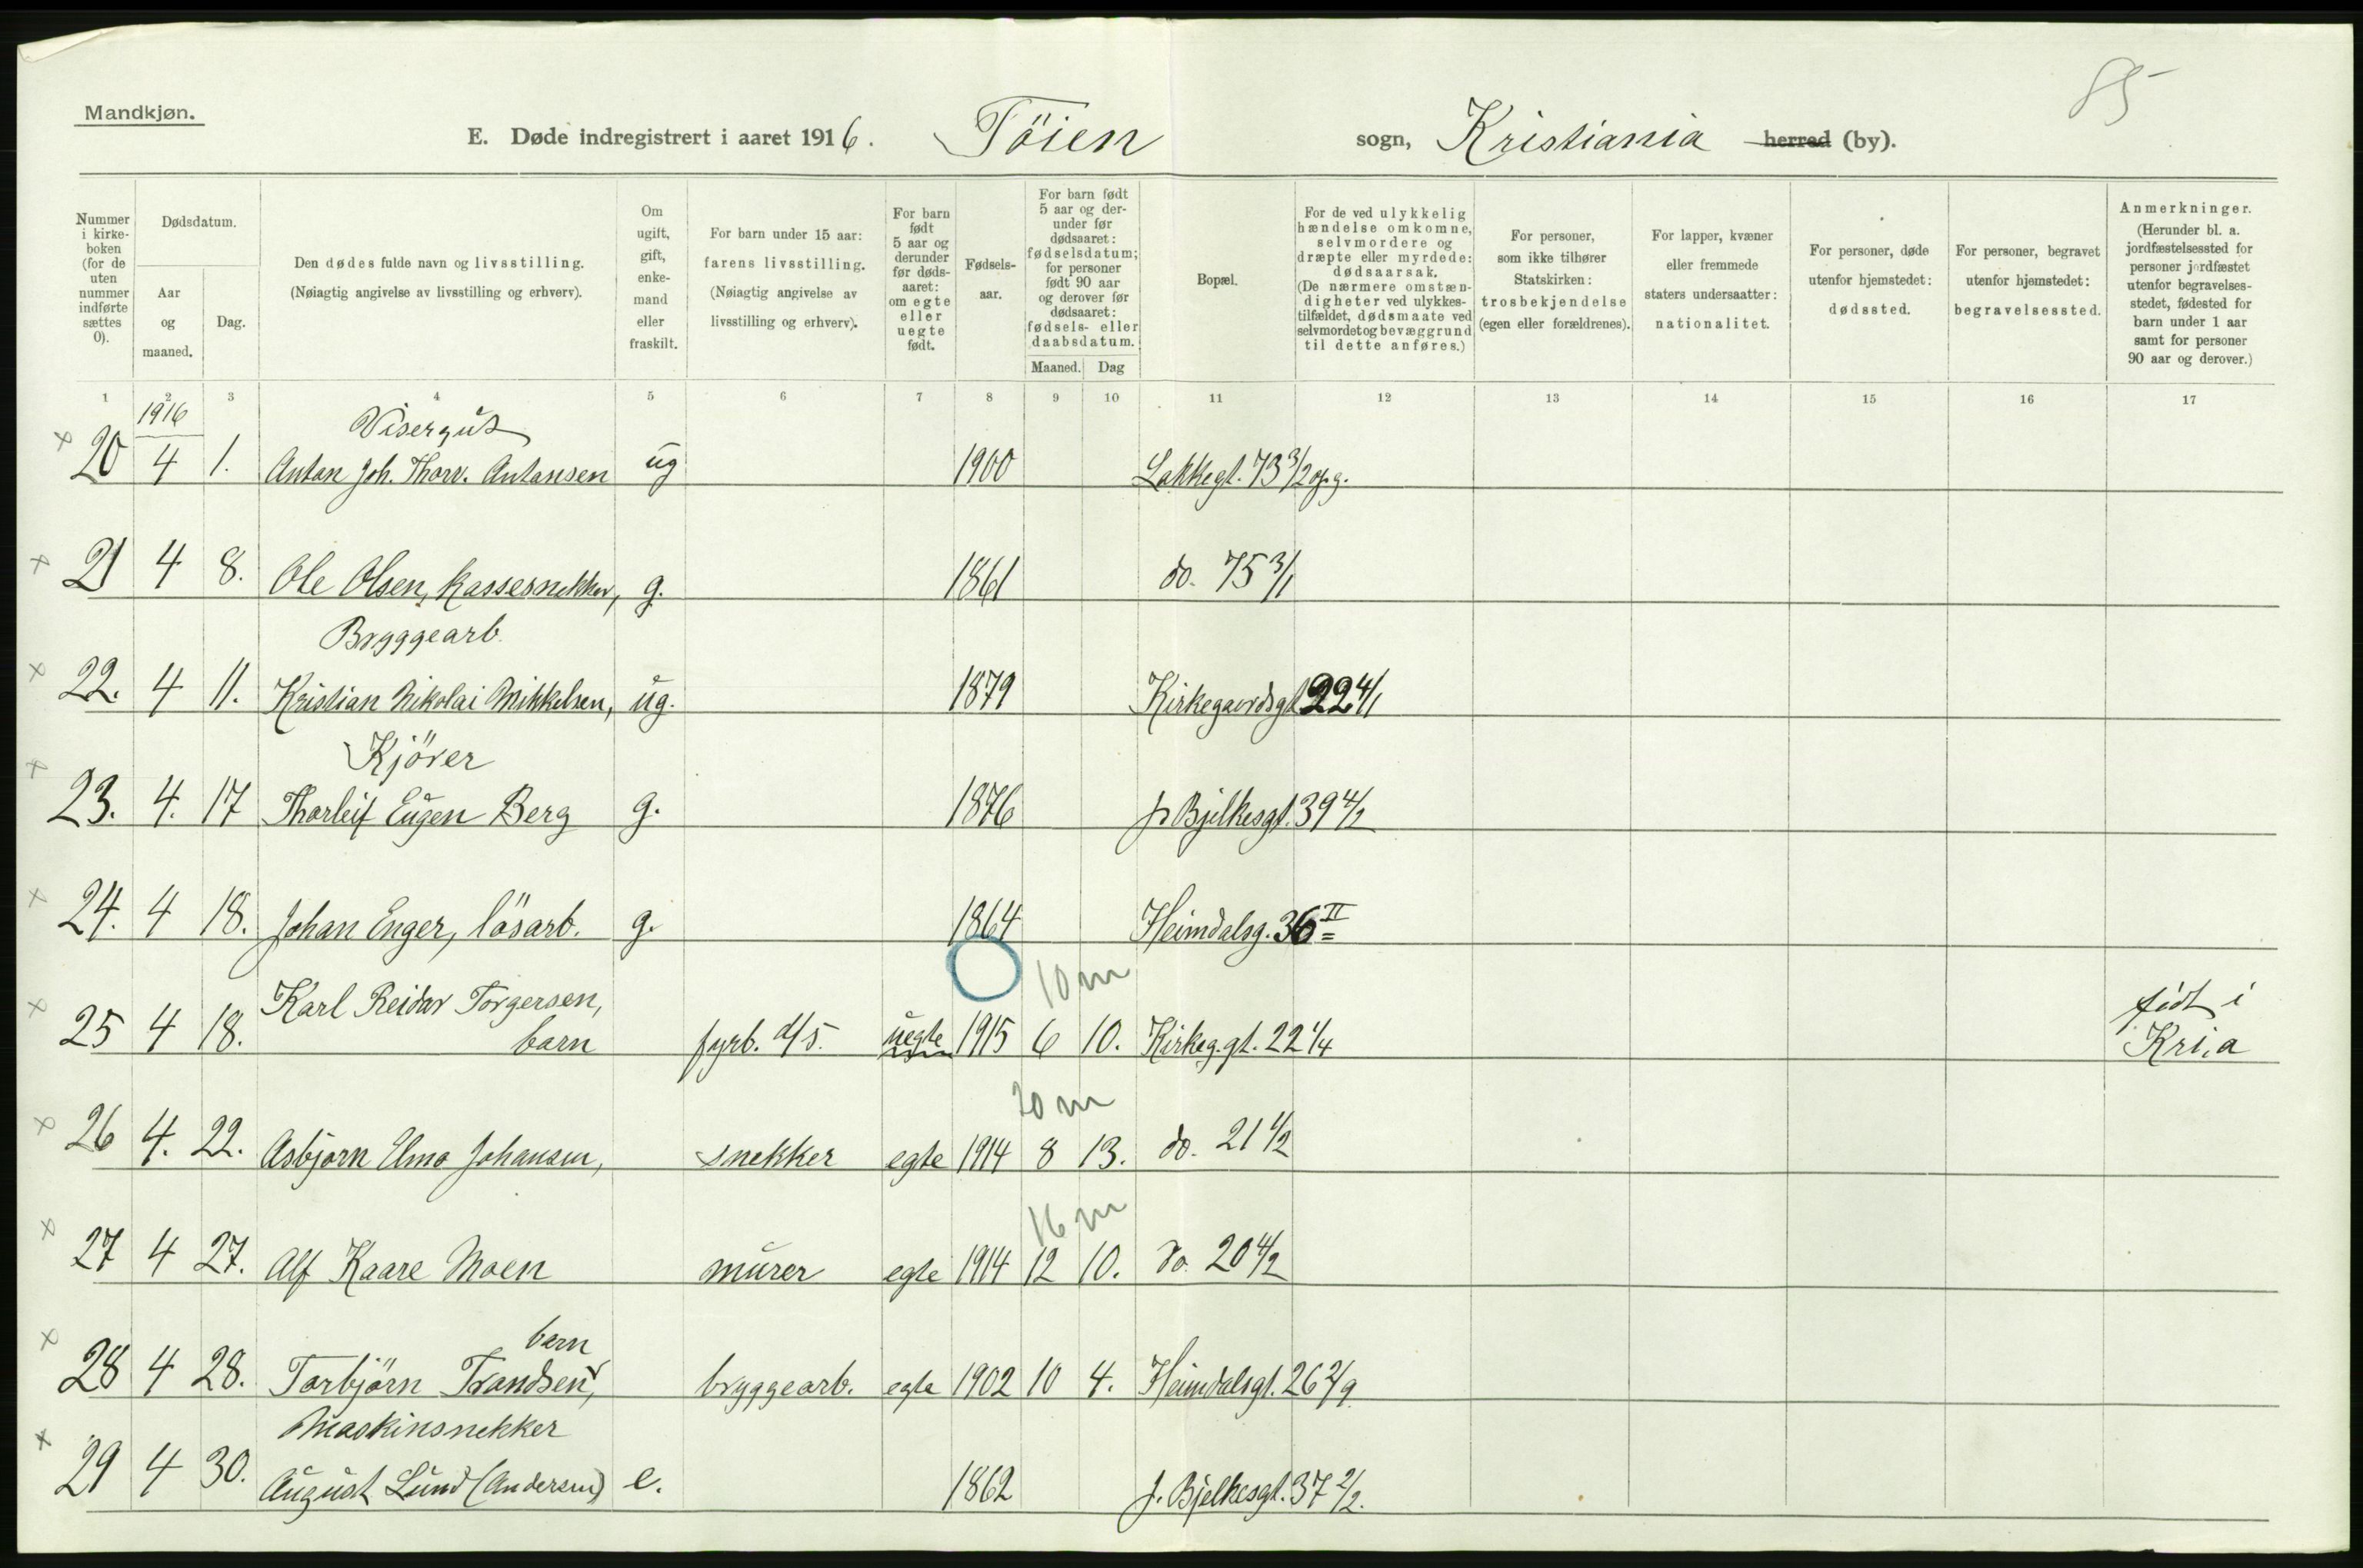 85
Mandkjøn.
E. Døde indregistrert i aaret 1916. Töien sogn, Kristiania herred (by).
Nummer i kirke-boken (for de uten nummer indførte sættes 0).
Dødsdatum.
Aar og maaned.
Dag.
Den dødes fulde navn og livsstilling.
(Nøiagtig angivelse av livsstilling og erhverv).
Om ugift, gift, enke-mand eller fraskilt.
For barn under 15 aar: farens livsstilling.
(Nøiagtig angivelse av livsstilling og erhverv).
For barn født 5 aar og derunder før døds-aaret: om egte eller uegte født.
Fødsels-aar.
For barn født 5 aar og der-under før dødsaaret: fødselsdatum; for personer født 90 aar og derover før dødsaaret: fødsels- eller daabsdatum.
Maaned. Dag
Bopæl.
For de ved ulykkelig hændelse omkomne, selvmordere og dræpte eller myrdede: dødsaarsak.
(De nærmere omstæn-digheter ved ulykkes-tilfældet, dødsmaate ved selvmordet og bevæggrund til dette anføres.)
For personer, som ikke tilhører Statskirken: trosbekjendelse (egen eller forældrenes).
For lapper, kvæner eller fremmede staters undersaatter: nationalitet.
For personer, døde utenfor hjemstedet: dødssted.
For personer, begravet utenfor hjemstedet: begravelsessted.
Anmerkninger.
(Herunder bl. a. jordfæstelsessted for personer jordfæstet utenfor begravelses-stedet, fødested for barn under 1 aar samt for personer 90 aar og derover.)
1 2 3 4 5 6 7 8 9 10 11 12 13 14 15 16 17
1916
Visergut
x 20 4 1. Anton Joh. Thorv. Antonsen ug 1900 Lakkegt. 73 3/2 opg.
x 21 4 8. Ole Olsen, kassesnekker, g. 1861 do. 75 3/1
Bryggearb.
x 22. 4 11. Kristian Nikolai Mikkelsen, ug. 1879 Kirkegaardsgt 22 4/1
Kjörer
x 23. 4. 17 Thorleif Eugen Berg g. 1876 J. Bjelkesgt. 39 4/2
x 24. 4 18. Johan Enger, lösarb. g. 1864 Heimdalsg. 36 II
10 m
Karl Reidar Torgersen, født i
x 25 4 18. barn fyrb. d/s. uegte 1915 6 10. Kirkeg.gt. 22 1/4 Kri.a
20 m
x 26 4. 22. Asbjørn Elmo Johansen, snekker egte 1914 8 13. do. 21 1/2
16 m
x 27 4 27. Alf Kaare Moen murer egte 1914 12 10. do. 20 4/2
barn
x 28 4 28. Torbjörn Trandsen, bryggearb. egte 1902 10 4. Heimdalsgt. 26 2/9
Maskinsnekker
x 29 4 30. August Lund (Andersen) e. 1862 J. Bjelkesgt. 37 2/2.